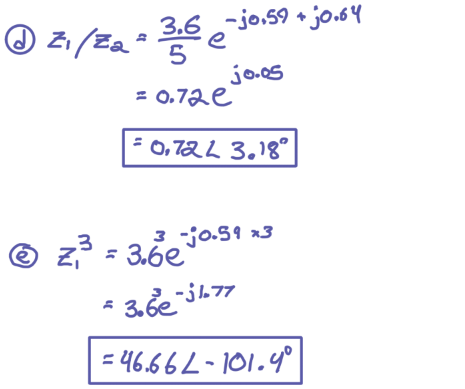 ⓓ z₁/z₂ = 3.6/5 e^(-j0.59 + j0.64)
= 0.72 e^(j0.05)
= 0.72∠3.18°
ⓔ z₁³ = 3.6³e^(-j0.59 ×3)
= 3.6³e^(-j1.77)
= 46.66∠-101.4°